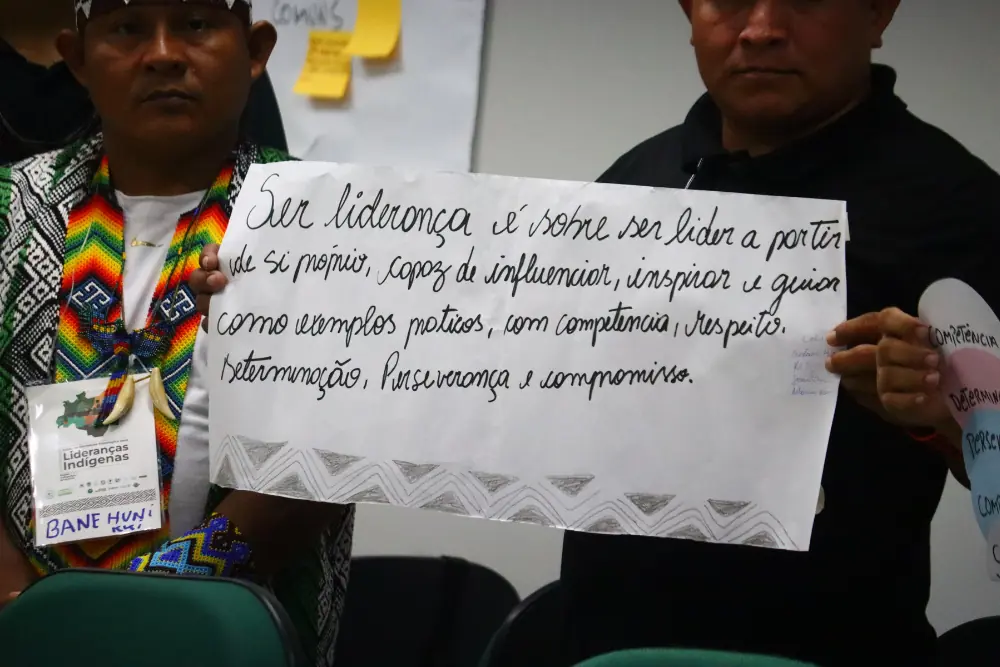 COMUNS
Ser liderança é sobre ser lider a partir
de si próprio, capaz de influenciar, inspirar e guiar
como exemplos praticos, com competência, respeito.
Determinação, Perseverança e compromisso.
Lideranças
Indígenas
BANE HUNI
KUI
COMPETÊNCIA
DETERMIN
PERSE
COM